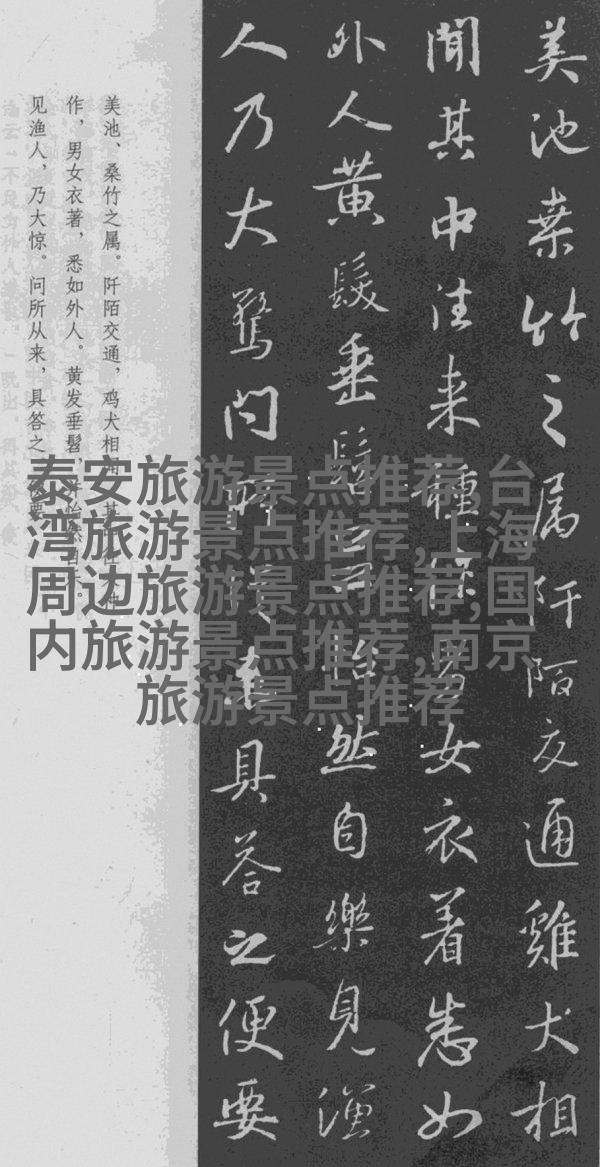 美池桑竹之属阡陌交通雞犬相
聞其中往来種作男女衣着悉如
外人黄髮垂髫并怡然自樂見漁
人乃大驚问所従来具答之便要
美池、桑竹之属。阡陌交通，鸡犬相闻。其中往来种
作，男女衣著，悉如外人。黄发垂髫，并怡然自乐。
见渔人，乃大惊。问所从来，具答之。便要
泰安旅游景点推荐,台
湾旅游景点推荐,上海
周边旅游景点推荐,国
内旅游景点推荐,南京
旅游景点推荐